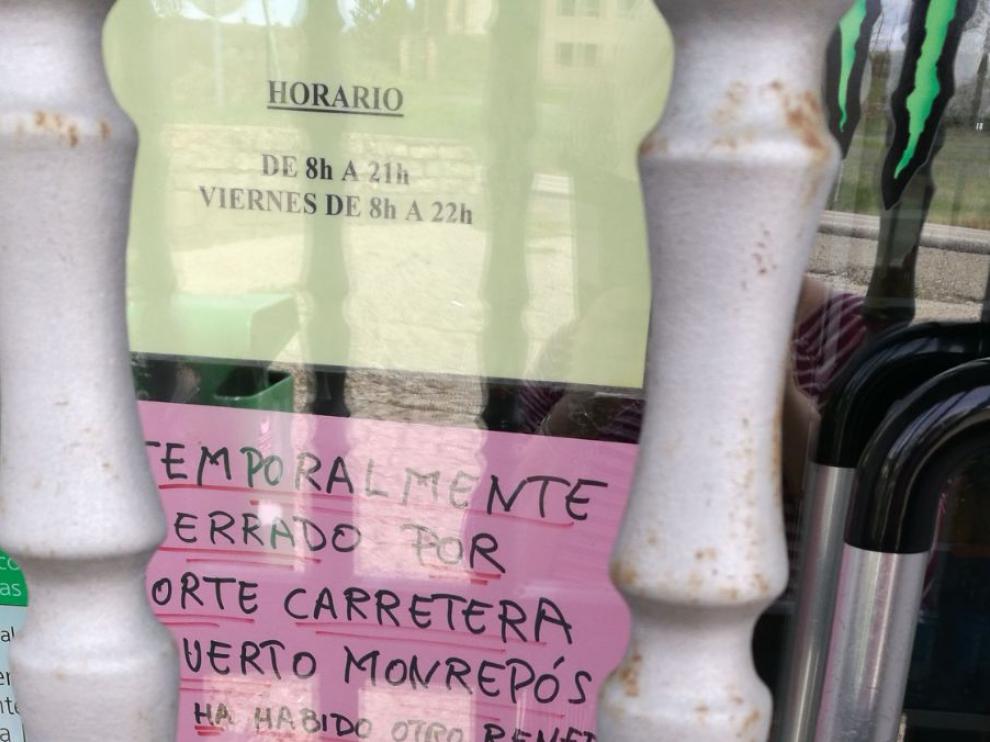 HORARIO
DE 8h A 21h
VIERNES DE 8h A 22h
TEMPORALMENTE
ERRADO POR
ORTE CARRETERA
UERTO MONREPÓS
HA HABIDO OTRO